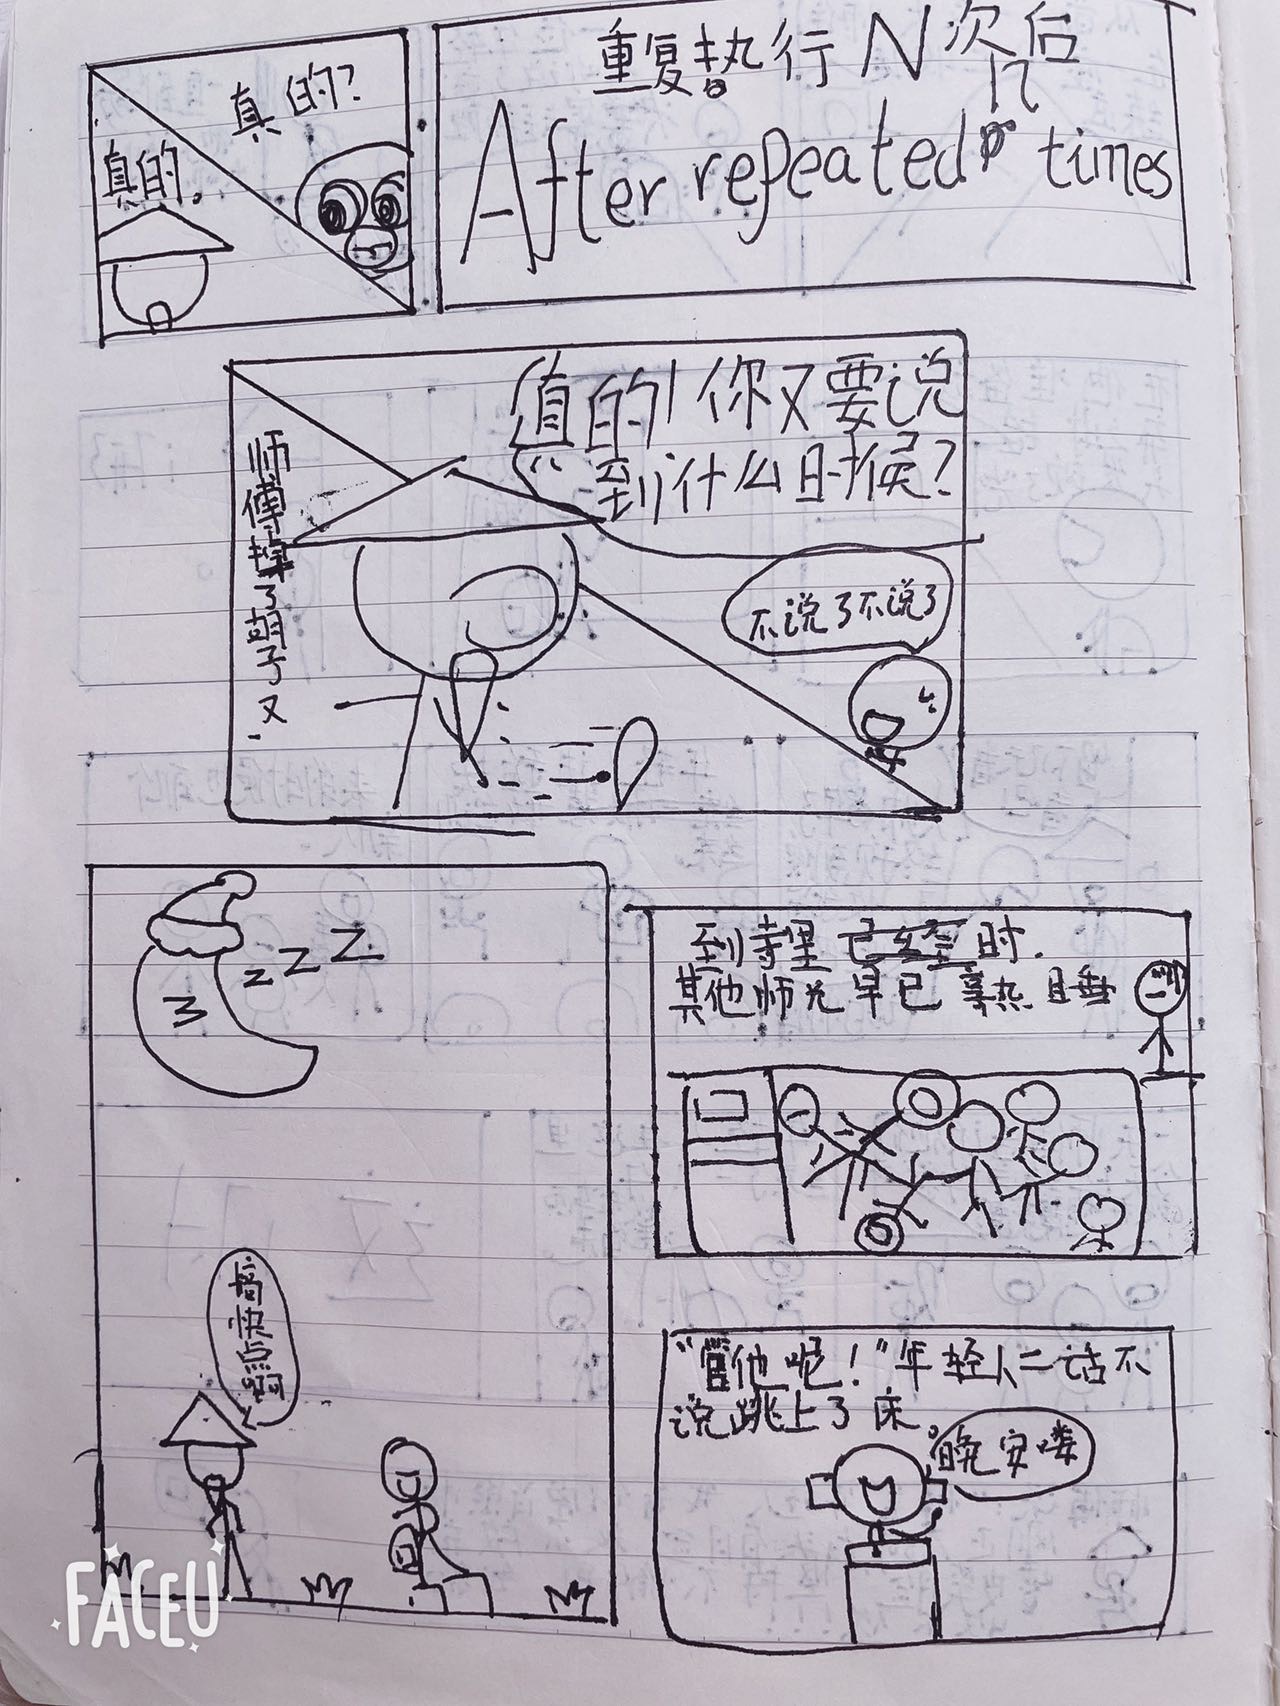 真的?
真的.
重复执行N次后
After repeated n times
真的!你又要说
到什么时候?
师傅掉了胡子又.
不说了不说了
z z z
到寺里已经空时.
其他师兄早已熟睡
搞快点啊
"管他呢!"年轻人二话不
说跳上了床。
晚安喽
FACEU